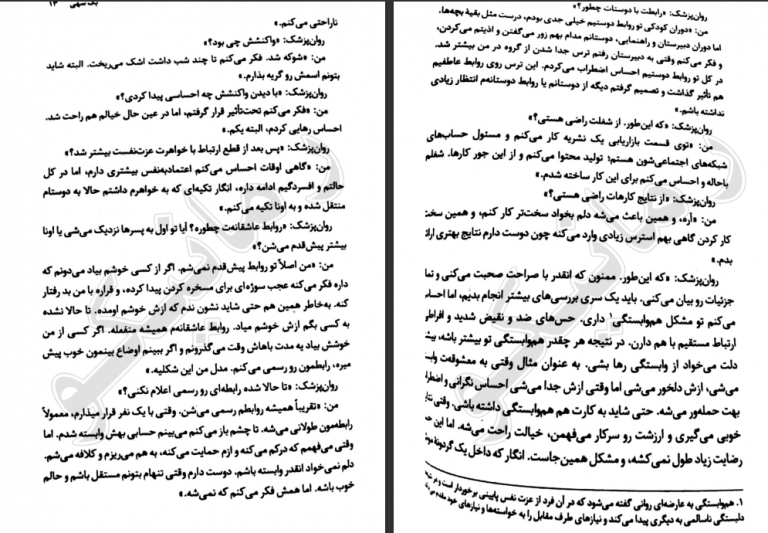 بک سهی ۱۳
ناراحتی می‌کنم.»
روان‌پزشک: «واکنشش چی بود؟»
من: «شوکه شد. فکر می‌کنم تا چند شب داشت اشک می‌ریخت. البته شاید
بتونم اسمش رو گریه بذارم.»
روان‌پزشک: «با دیدن واکنشش چه احساسی پیدا کردی؟»
من: «فکر می‌کنم تحت‌تأثیر قرار گرفتم، اما در عین حال خیالم هم راحت شد.
احساس رهایی کردم، البته یکم.»
روان‌پزشک: «پس بعد از قطع ارتباط با خواهرت عزت‌نفست بیشتر شد؟»
من: «گاهی اوقات احساس می‌کنم اعتمادبه‌نفس بیشتری دارم، اما در کل
حالتم و افسردگیم ادامه داره، انگار تکیه‌ای که به خواهرم داشتم حالا به دوستام
منتقل شده و به اونا تکیه می‌کنم.»
روان‌پزشک: «روابط عاشقانه‌ت چطوره؟ آیا تو اول به پسرها نزدیک می‌شی یا اونا
بیشتر پیش‌قدم می‌شن؟»
من: «من اصلاً تو روابط پیش‌قدم نمی‌شم. اگر از کسی خوشم بیاد می‌دونم که
داره فکر می‌کنه عجب سوژه‌ای برای مسخره کردن پیدا کرده، و قراره با من بد رفتار
کنه. به‌خاطر همین هم حتی شاید نشون ندم که ازش خوشم اومده. تا حالا نشده
به کسی بگم ازش خوشم میاد. روابط عاشقانه‌م همیشه منفعله. اگر کسی از من
خوشش بیاد یه مدت باهاش وقت می‌گذرونم و اگر ببینم اوضاع بینمون خوب پیش
میره، رابطمون رو رسمی می‌کنم. مدل من این شکلیه.»
روان‌پزشک: «تا حالا شده رابطه‌ای رو رسمی اعلام نکنی؟»
من: «تقریباً همیشه روابطم رسمی می‌شن. وقتی با یک نفر قرار میذارم، معمولاً
رابطه‌مون طولانی می‌شه. تا چشم باز می‌کنم می‌بینم حسابی بهش وابسته شدم. اما
وقتی می‌فهمم که درکم می‌کنه و ازم حمایت می‌کنه، به هم می‌ریزم و کلافه می‌شم.
دلم نمی‌خواد انقدر وابسته باشم. دوست دارم وقتی تنهام بتونم مستقل باشم و حالم
خوب باشه. اما همش فکر می‌کنم که نمی‌شه.»
روان‌پزشک: «رابطت با دوستات چطور؟»
من: «دوران کودکی تو روابط دوستیم خیلی جدی بودم، درست مثل بقیهٔ بچه‌ها.
اما دوران دبیرستان و راهنمایی، دوستانم مدام بهم زور می‌گفتن و اذیتم می‌کردن،
و فکر می‌کنم وقتی به دبیرستان رفتم ترس جدا شدن از گروه در من بیشتر شد.
در کل تو روابط دوستیم احساس اضطراب می‌کردم. این ترس روی روابط عاطفیم
هم تأثیر گذاشت و تصمیم گرفتم دیگه از دوستانم یا روابط دوستانه‌م انتظار زیادی
نداشته باشم.»
روان‌پزشک: «که این‌طور. از شغلت راضی هستی؟»
من: «توی قسمت بازاریابی یک نشریه کار می‌کنم و مسئول حساب‌های
شبکه‌های اجتماعی‌شون هستم؛ تولید محتوا می‌کنم و از این جور کارها. شغلم
باحاله و احساس می‌کنم برای این کار ساخته شدم.»
روان‌پزشک: «از نتایج کارهات راضی هستی؟»
من: «آره، و همین باعث می‌شه دلم بخواد سخت‌تر کار کنم، و همین سخت
کار کردن گاهی بهم استرس زیادی وارد می‌کنه چون دوست دارم نتایج بهتری ارائه
بدم.»
روان‌پزشک: «که این‌طور. ممنون که انقدر با صراحت صحبت می‌کنی و
جزئیات رو بیان می‌کنی. باید یک سری بررسی‌های بیشتر انجام بدیم، اما احساس
می‌کنم تو مشکل هم‌وابستگی۱ داری. حس‌های ضد و نقیض شدید و
ارتباط مستقیم با هم دارن. در نتیجه هر چقدر هم‌وابستگی تو بیشتر باشه،
دلت می‌خواد از وابستگی رها بشی. به عنوان مثال وقتی به معشوقه‌ت
می‌شی، ازش دلخور می‌شی اما وقتی ازش جدا می‌شی احساس نگرانی و
بهت حمله‌ور می‌شه. حتی شاید به کارت هم هم‌وابستگی داشته باشی. وقتی
خوبی می‌گیری و ارزشت رو سرکار می‌فهمن، خیالت راحت می‌شه. اما این
رضایت زیاد طول نمی‌کشه، و مشکل همین‌جاست. انگار که داخل یک گردونهٔ
۱. هم‌وابستگی به عارضه‌ای روانی گفته می‌شود که در آن فرد از عزت نفس پایینی برخوردار است و
دلبستگی ناسالمی به دیگری پیدا می‌کند و نیازهای طرف مقابل را به خواسته‌ها و نیازهای خود